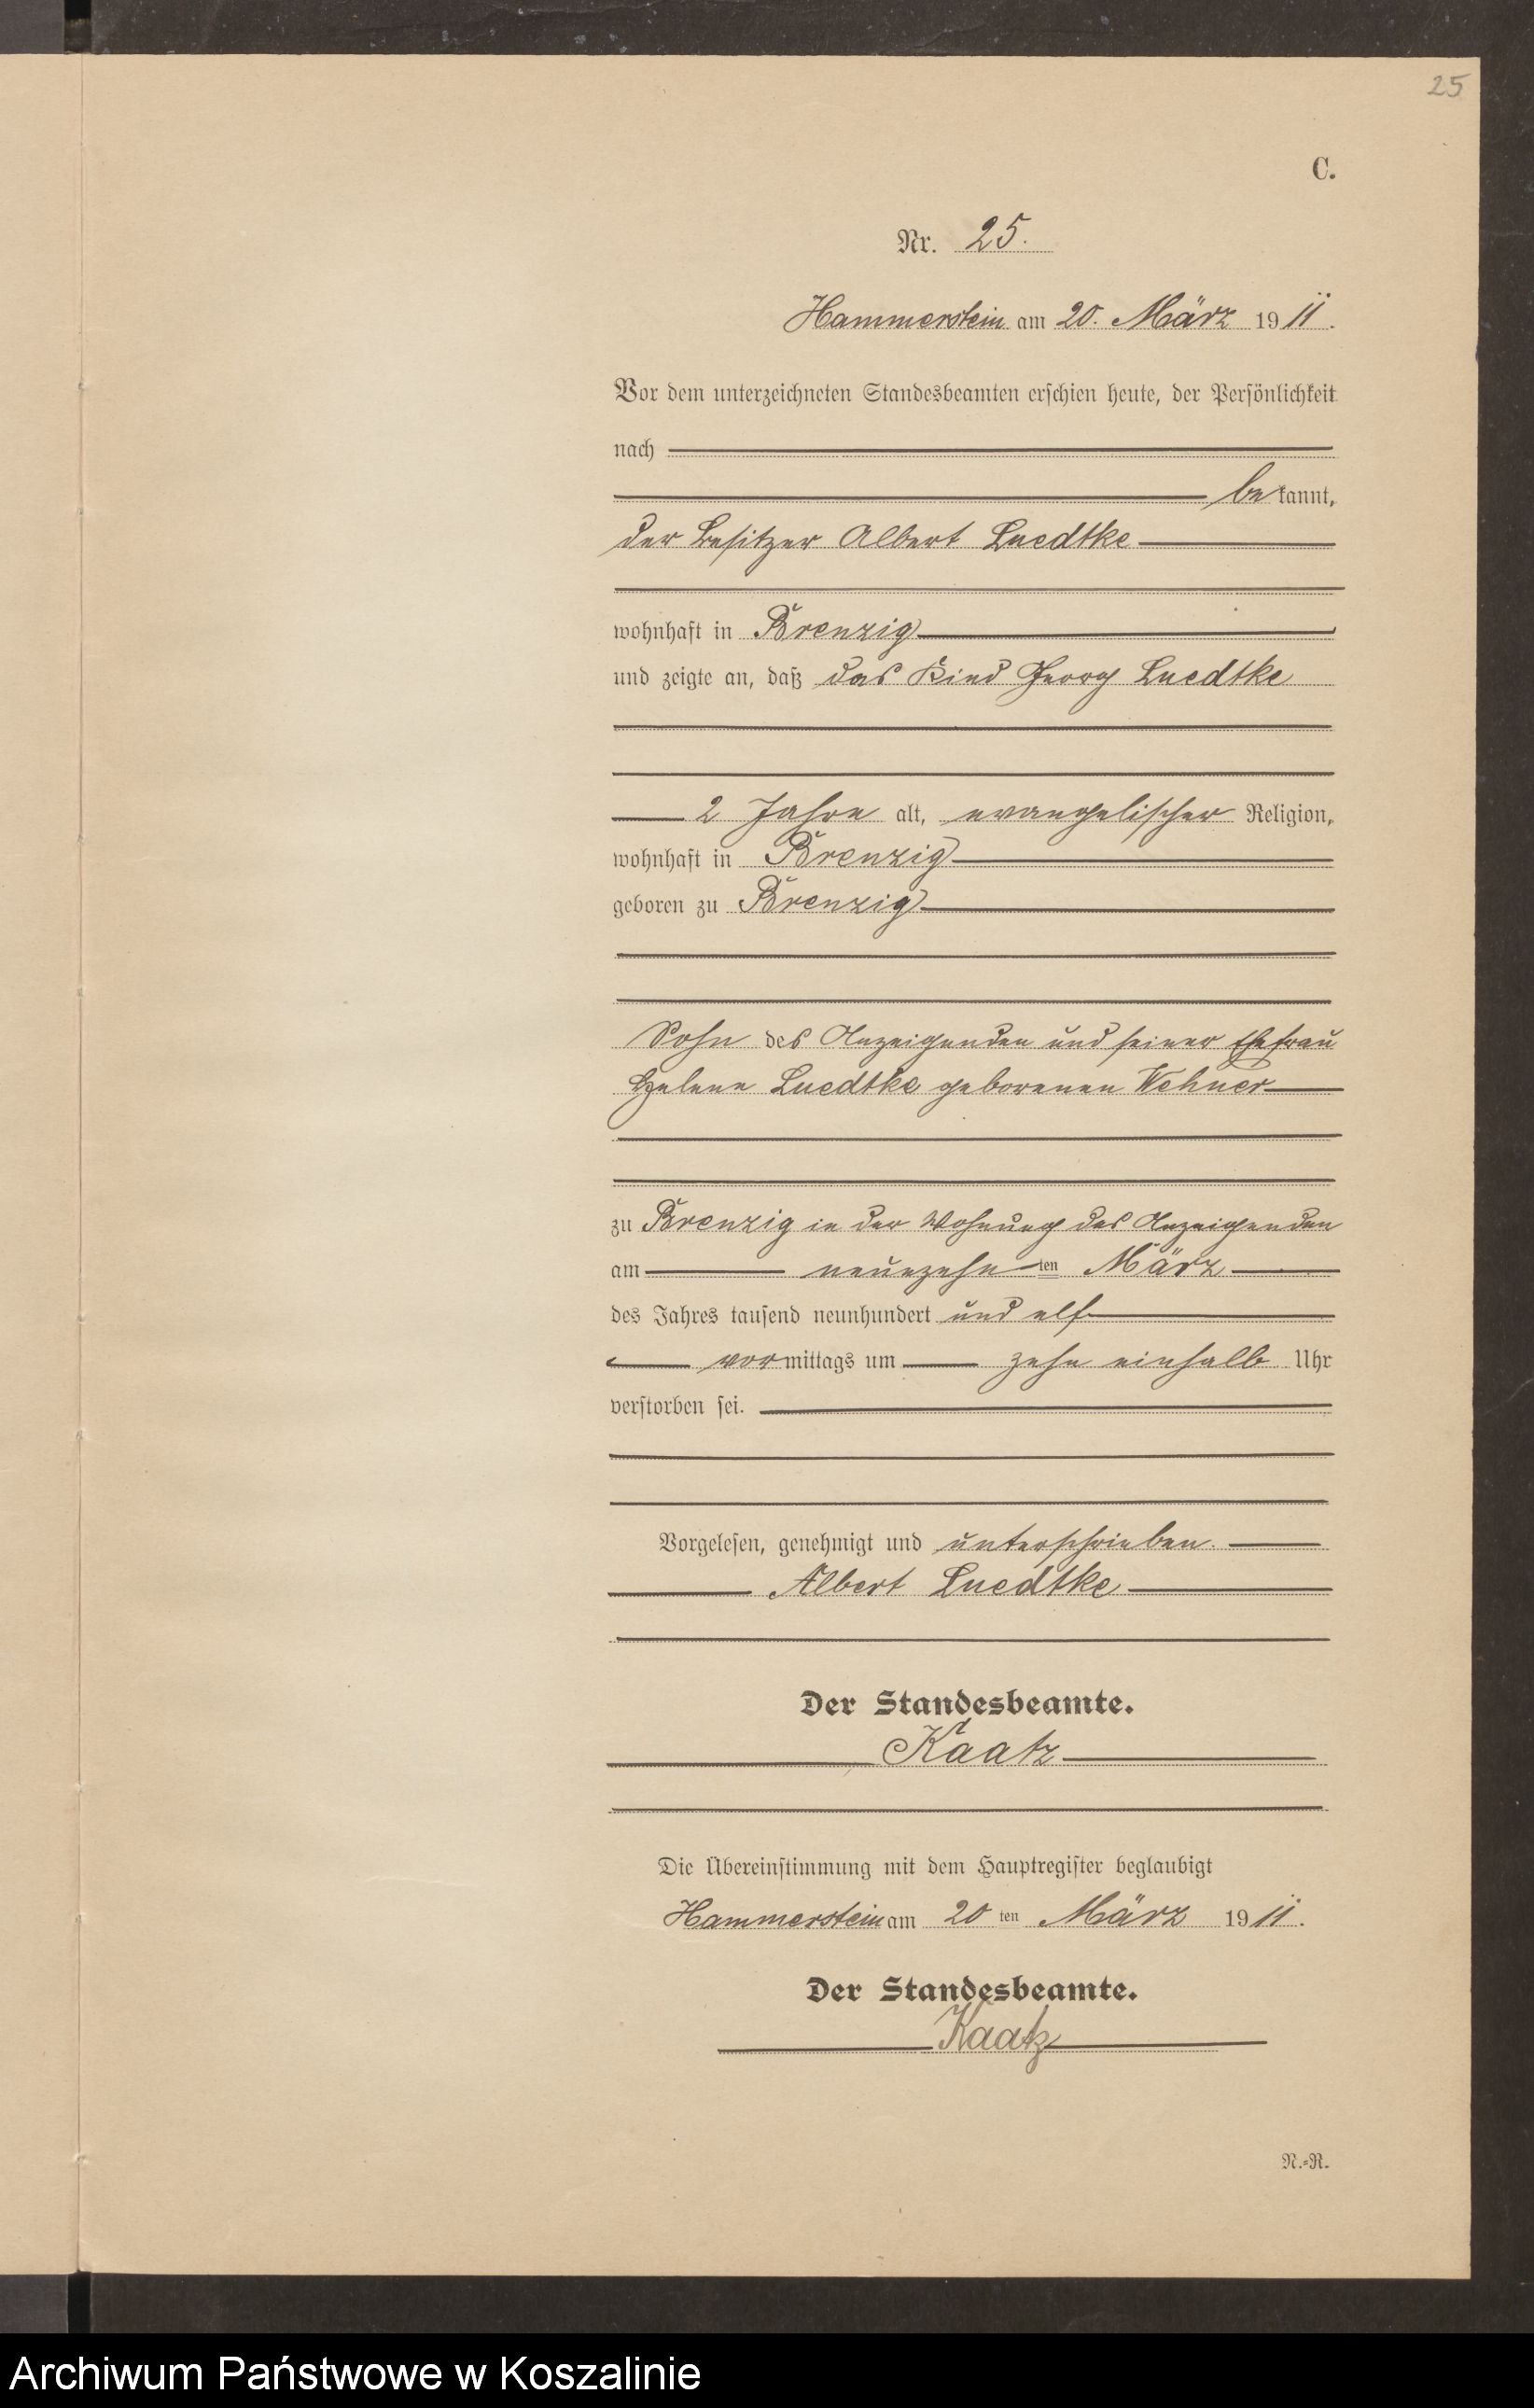 25
C.
Nr. 25.
Hammerstein am 20. März 1911.
Vor dem unterzeichneten Standesbeamten erschien heute, der Persönlichkeit
nach
bekannt,
der Besitzer Albert Luedtke
wohnhaft in Brenzig
und zeigte an, daß das Kind Georg Luedtke
2 Jahre alt, evangelischer Religion,
wohnhaft in Brenzig
geboren zu Brenzig
Sohn des Anzeigenden und seiner Ehefrau
Helene Luedtke geborenen Wehner
zu Brenzig in der Wohnung des Anzeigenden
am neunzehnten März
des Jahres tausend neunhundert und elf
vormittags um zehn einhalb Uhr
verstorben sei.
Vorgelesen, genehmigt und unterschrieben.
Albert Luedtke
Der Standesbeamte.
Kaatz
Die Übereinstimmung mit dem Hauptregister beglaubigt
Hammerstein am 20ten März 1911.
Der Standesbeamte.
Kaatz
N.-R.
Archiwum Państwowe w Koszalinie